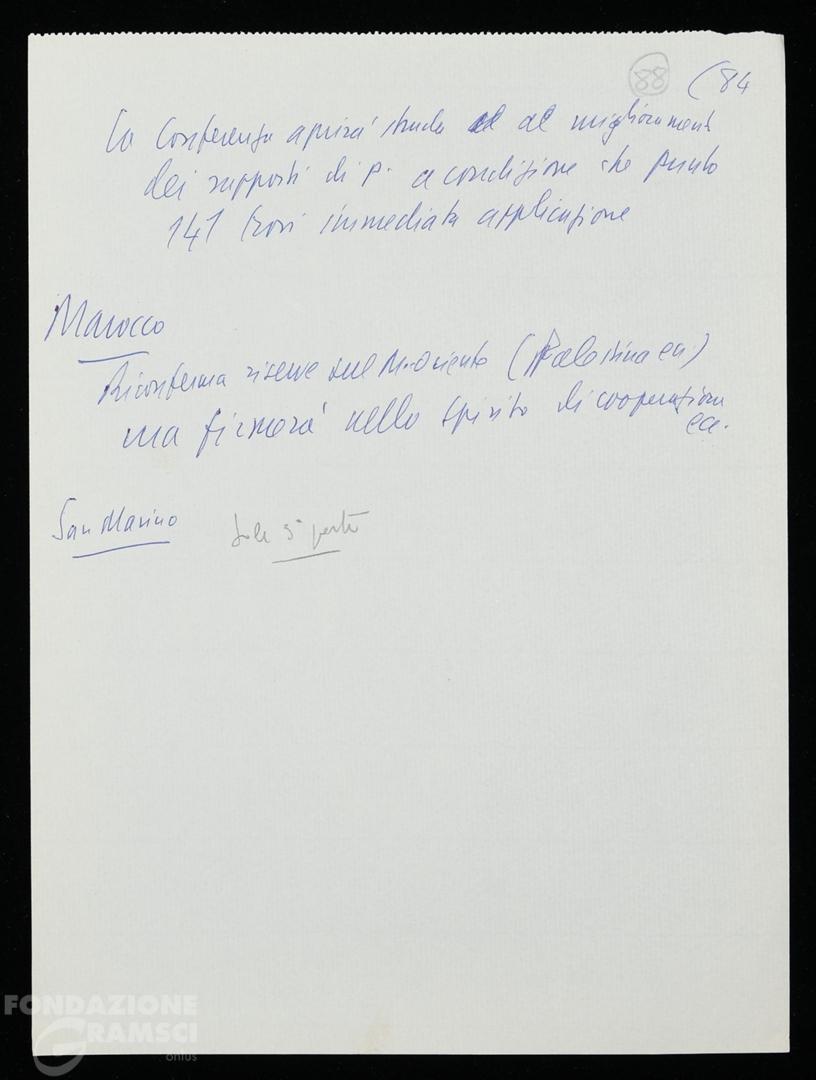 88 (84
La Conferenza aprirà strada al miglioramento
dei rapporti di p. a condizione che punto
141 trovi immediata applicazione
Marocco
Riconferma riserve sul M. Oriente (Palestina ecc.)
ma firmerà nello spirito di cooperazione
ecc.
San Marino 3ª parte
FONDAZIONE
GRAMSCI
onlus